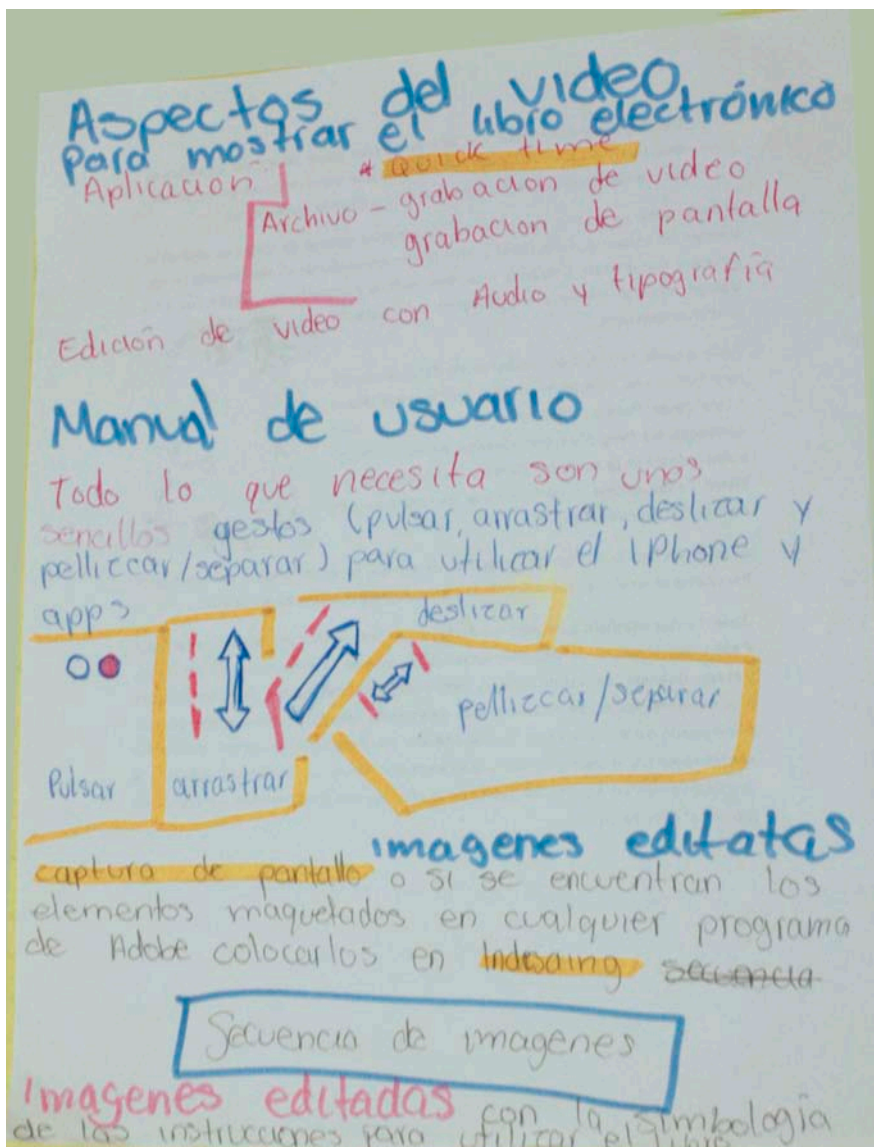 Aspectos del video
para mostrar el libro electrónico
Aplicación * Quick time
Archivo - grabacion de video
grabacion de pantalla
Edición de video con Audio y tipografía
Manual de usuario
Todo lo que necesita son unos
sencillos gestos (pulsar, arrastrar, deslizar y
pelliccar/separar) para utilizar el iphone y
apps
deslizar
pelliccar/separar
Pulsar
arrastrar
imagenes editatas
captura de pantalla o si se encuentran los
elementos maquetados en cualquier programa
de Adobe colocarlos en Indesaing secuencia
Secuencia de imagenes
Imagenes editadas con la simbología
de las instrucciones para utilizar el